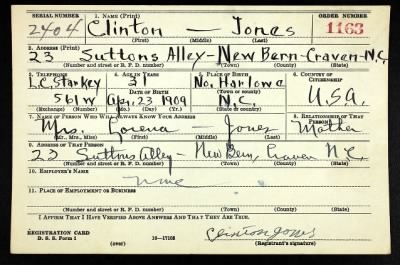 SERIAL NUMBER 1. NAME (Print) ORDER NUMBER
2404 Clinton — Jones 1163
(First) (Middle) (Last)
2. ADDRESS (Print)
23 Suttons Alley - New Bern - Craven - N.C.
(Number and street or R. F. D. number) (Town) (County) (State)
3. TELEPHONE 4. AGE IN YEARS 5. PLACE OF BIRTH 6. COUNTRY OF CITIZENSHIP
L.C. Starkey 31 No. Harlowe
DATE OF BIRTH (Town or county)
561W Apr. 23 1909 N.C. U.S.A.
(Exchange) (Number) (Mo.) (Day) (Yr.) (State or country)
7. NAME OF PERSON WHO WILL ALWAYS KNOW YOUR ADDRESS 8. RELATIONSHIP OF THAT PERSON
Mrs. Lorena — Jones Mother
(Mr., Mrs., Miss) (First) (Middle) (Last)
9. ADDRESS OF THAT PERSON
23 Suttons Alley - New Bern, Craven N.C.
(Number and street or R. F. D. number) (Town) (County) (State)
10. EMPLOYER'S NAME
None
11. PLACE OF EMPLOYMENT OR BUSINESS
(Number and street or R. F. D. number) (Town) (County) (State)
I AFFIRM THAT I HAVE VERIFIED ABOVE ANSWERS AND THAT THEY ARE TRUE.
REGISTRATION CARD Clinton Jones
D. S. S. Form 1 (over) 16—17105 (Registrant's signature)